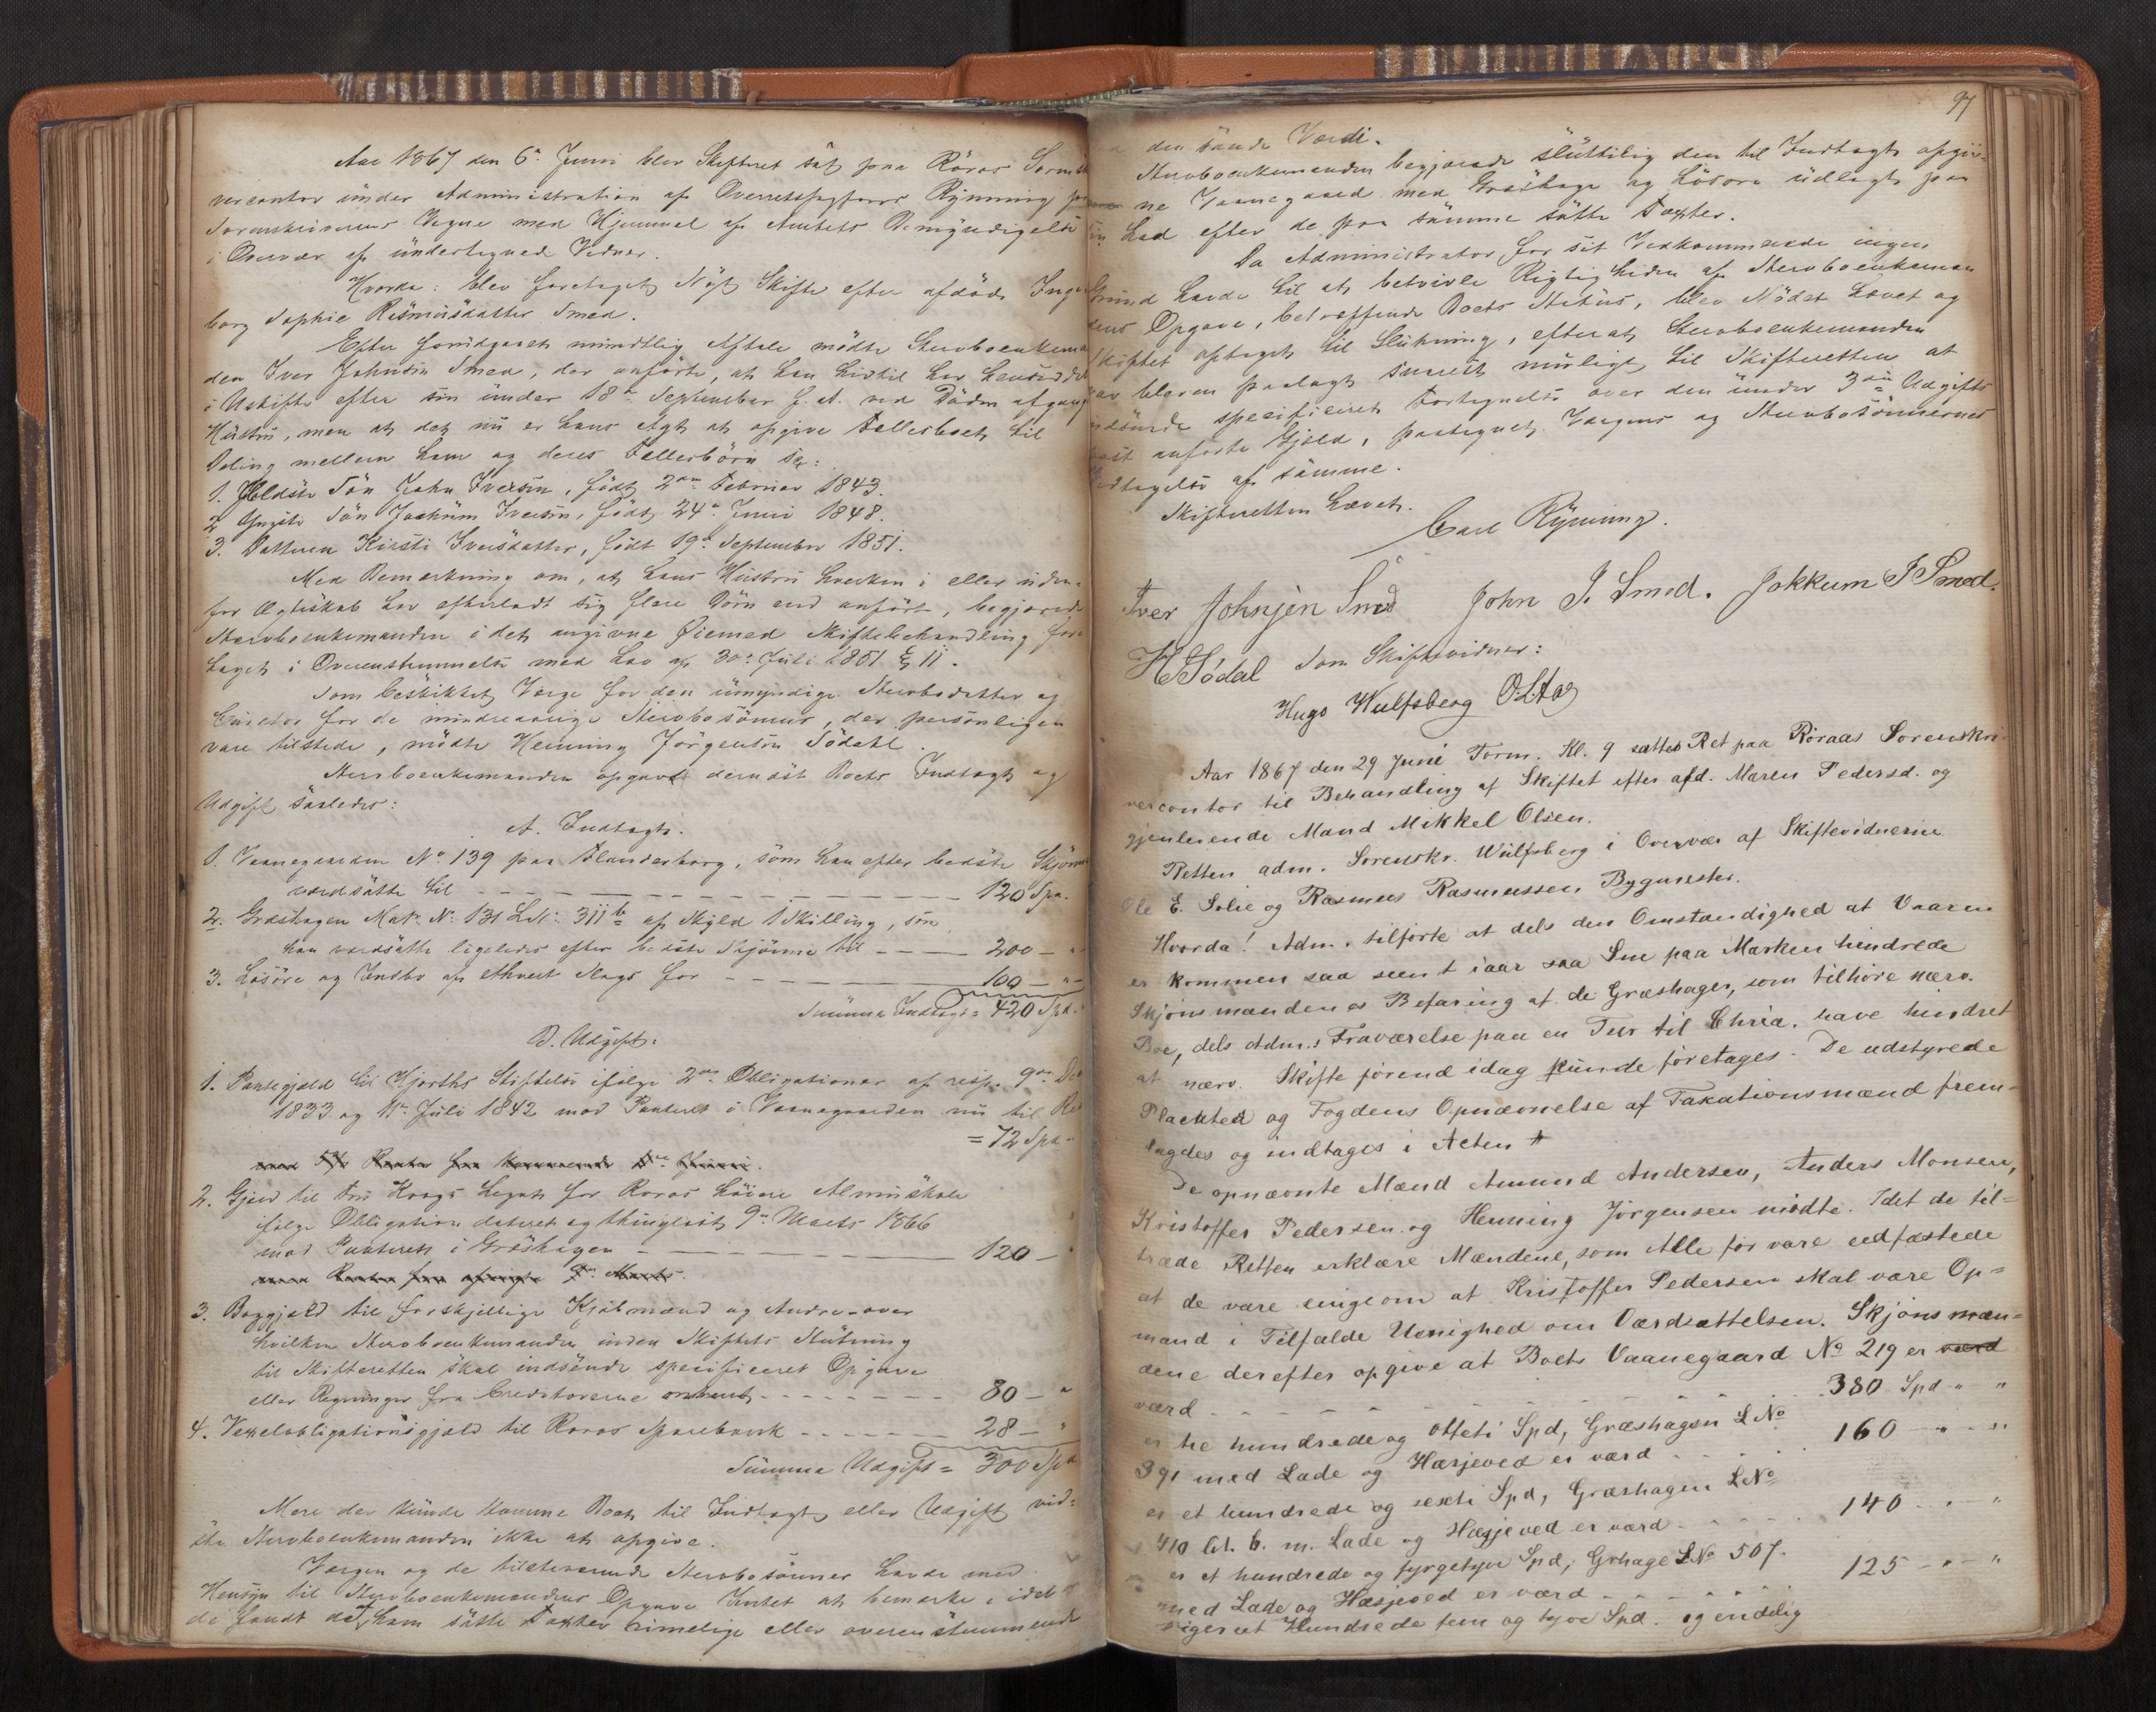 Aar 1867 den 6te Juni blev Skifteret sat paa Röros Sorenskri
vercontor under Administration af Overretssagförer Rynning paa
Sorenskriverens Vegne med Hjemmel af Amtets Bemyndigelse
i Overvær af undertegnede Vidner.
Hvorda: blev foretaget Nyt Skifte efter afdöde Inge
borg Sophie Rasmusdatter Smed.
Efter forudgaaet mundtlig Aftale mödte Stervboenkeman
den Iver Johnsen Smed, der anförte, at han hidtil har henseddet
i Uskifte efter sin under 18de September f. A. ved Döden afgangne
Hustru, men at det nu er hans Agt at opgive Fællesboet til
Deling mellem ham og deres Fællesbörn se:
1. Ældste Sön John Iversen, födt 2den Februar 1843.
2. Yngste Sön Jochum Iversen, födt 24de Juni 1848.
3. Datteren Kirsti Iversdatter, födt 19de September 1851.
Med Bemærkning om, at hans Hustru hverken i eller uden-
for Ægteskab har efterladt sig flere Börn end anfört, begjærede
Stervboenkemanden i det angivne Øiemed Skiftebehandling fore
taget i Overensstemmelse med Lov af 30te Juli 1851 § 11.
Som beskikket Værge for den umyndige Stervbodatter og
Curator for de mindreaarige Stervbosönner, der personligen
vare tilstede, mödte Henning Jörgensen Södahl.
Stervboenkemanden opgav dernæst Boets Indtægt og
Udgift saaledes:
A. Indtægt.
1. Vaanegaarden No 139 paa Flanderborg, som han efter bedste Skjön
værdsatte til - - - 120 Spd.
2. Græshagen Mat. No 131 L.N. 311b af Skyld 1 Skilling, som
han værdsatte ligeledes efter bedste Skjönne til - - - 200 - "
3. Lösöre og Indbo af ethvert Slags for - - - 100 - " -
Summa Indtægt = 420 Spd.
B. Udgift:
1. Pantegjæld til Hjorths Stiftelse ifölge 2de Obligationer af resp. 9de Dec
1833 og 11te Juli 1842 mod Panteret i Vaanegaarden nu til Rest
= 72 Spd -
2. Gjæld til Fru Krags Legat for Roros höiere Almueskole
ifölge Obligation dateret og thinglæst 9de Marts 1866
mod Panteret i Græshagen - - - 120 - "
3. Boggjæld til forskjellige Kjöbmænd og Andre - over
hvilken Stervboenkemanden inden Skiftets Slutning
til Skifteretten skal indsende specificeret Opgave
eller Regninger fra Creditorerne omtrent - - - 80 - "
4. Vexelobligationsgjæld til Roros Sparebank - - - 28 - "
Summa Udgift = 300 Spd
Mere der kunde komme Boet til Indtægt eller Udgift vid-
ste Stervboenkemanden ikke at opgive.
Værgen og de tilstedeværende Stervbosönner havde med
Hensyn til Stervboenkemandens Opgave Intet at bemærke, idet
de fandt de af ham satte Taxter rimelige eller overensstemmende
97
den sande Værdi.
Stervboenkemanden begjærede sluttelig den til Indtægt opgiv-
ne Vaanegaard med Græshage og Lösöre udlagt paa
sin Lod efter de paa samme satte Taxter.
Da Administrator for sit Vedkommende ingen
Grund havde til at betvivle Rigtigheden af Stervboenkeman
dens Opgave, betræffende Boets Status, blev Mödet hævet og
Skiftet optaget til Slutning, efterat Stervboenkemanden
var bleven paalagt snarest muligt til Skifteretten at
indsende specificeret Fortegnelse over den under 3die Udgifts
post anförte Gjæld, paategnet Værgens og Stervbosönnernes
Vedtagelse af samme.
Skifteretten hævet.
Carl Rynning.
Iver Johnsen Smed John I. Smed. Jokkum I Smed.
H Södal Som Skiftevidner:
Hugo Wulfsberg O L Aas
Aar 1867 den 29 Juni Form. Kl. 9 sattes Ret paa Röraas Sorenskri-
vercontor til Behandling af Skiftet efter afd. Maren Pedersd. og
gjenlevende Mand Mikkel Olsen.
Retten adm. Sorenskr. Wulfsberg i Overvær af Skiftevidnerne
Ole E. Solie og Rasmus Rasmussen Bygmester.
Hvorda! Adm. tilförte at dels den Omstændighed at Vaaren
er kommen saa seent iaar saa Sne paa Marken hindrede
Skjönsmændenes Befaring af de Græshager, som tilhöre nærv.
Boe, dels Adm.s Fraværelse paa en Tur til Chria. have hindret
at nærv. Skifte förend idag kunde foretages. De udstyrede
Placater og Fogdens Opnævnelse af Taxationsmænd frem-
lagdes og indtages i Acten #
De opnævnte Mænd Amund Andersen, Anders Monsen,
Kristoffer Pedersen og Henning Jörgensen mödte. Idet de til-
træde Retten erklære Mændene, som Alle för vare eedfæstede
at de være enige om at Kristoffer Pedersen skal være Op-
mand i Tilfælde Uenighed om Værdsættelsen. Skjönsmæn-
dene derefter opgive at Boets Vaanegaard No 219 er værd
værd - - - 380 Spd " "
er tre hundrede og otteti Spd, Græshagen L No
391 med Lade og Hæsjeved er værd - - - 160 - " - "
er et hundrede og sexti Spd, Græshagen L No
410 lit. b. m. Lade og Hæsjeved er værd - - - 140 - " - "
er et hundrede og fyrgetyve Spd, Grhage L No 507.
med Lade og Hæsjeved er værd - - - 125 - " - "
siger et Hundrede fem og tyve Spd. og endelig